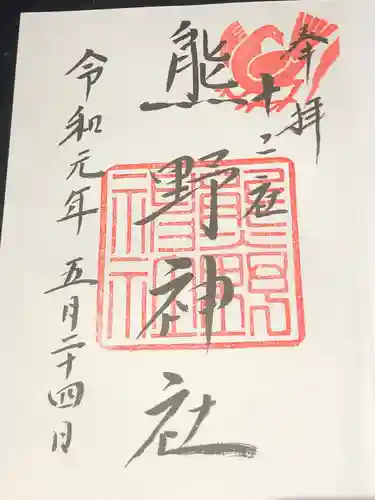 奉拝
十二社
熊野神社
令和元年 五月二十四日
熊野
神社